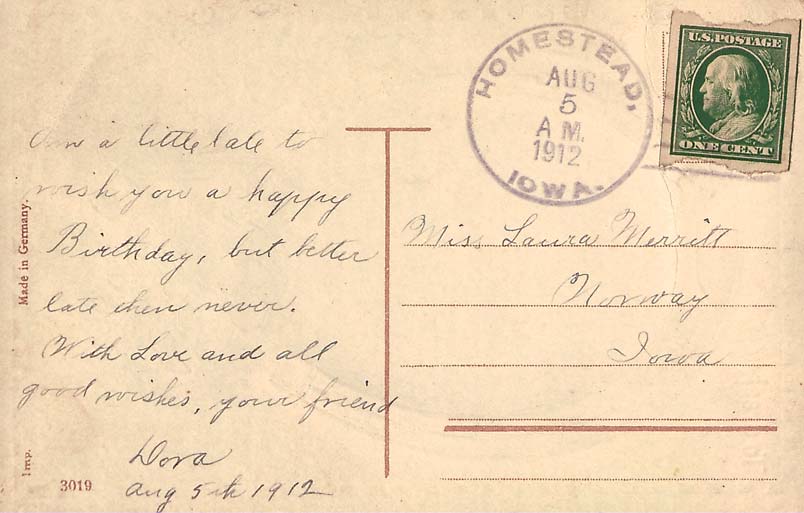 HOMESTEAD,
AUG
5
A M.
1912
IOWA.
U.S. POSTAGE
ONE CENT
Am a little late to
wish you a happy
Birthday, but better
late then never.
With Love and all
good wishes, your friend
Dora
Aug 5th 1912
Miss Laura Merritt
Norway
Iowa
Made in Germany.
Imp.
3019